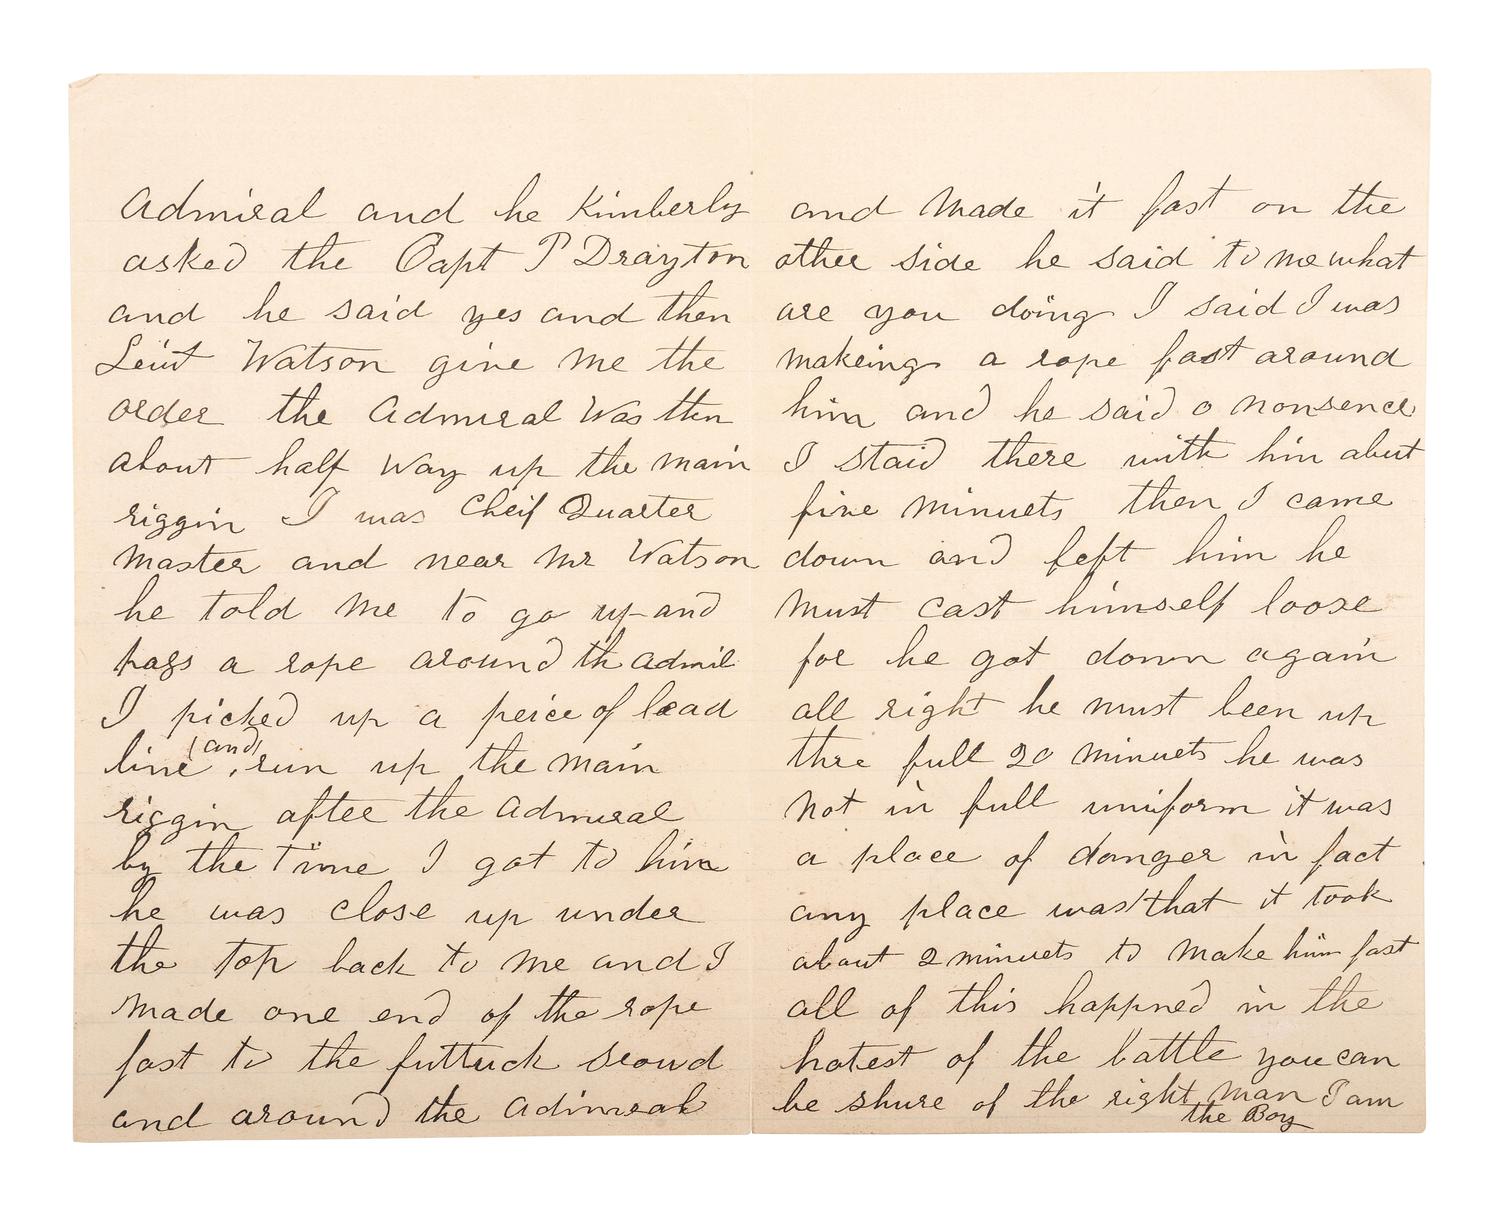 Admiral and he Kimberly
asked the Capt P Drayton
and he said yes and then
Leiut Watson give me the
order the Admiral Was then
about half way up the main
riggin I was Cheif Quarter
Master and near Mr Watson
he told me to go up and
pass a rope around th Admil
I picked up a peice of lead
line (and) run up the main
riggin after the Admiral
by the Time I got to him
he was close up under
the top back to me and I
Made one end of the rope
fast to the futtuck sroud
and around the Admiral
and Made it fast on the
other side he said to me what
are you doing I said I was
makeing a rope fast around
him and he said o nonsence
I staid there with him abut
five Minuets then I came
down and left him he
Must cast himself loose
for he got down again
all right he must been up
thre full 20 Minuets he was
Not in full uniform it was
a place of danger in fact
any place was that it took
about 2 minuets to Make him fast
all of this happned in the
hotest of the battle you can
be shure of the right Man I am
the Boy